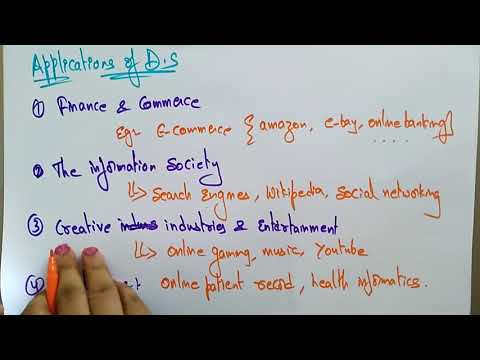 Applications of D.S
① Finance & Commerce
Eg:- E-commerce { amazon, e-bay, online banking}
② The information Society
↳> Search Engines, Wikipedia, Social networking
③ Creative industries & Entertainment
↳> online gaming, music, Youtube
④ online patient record, health informatics.